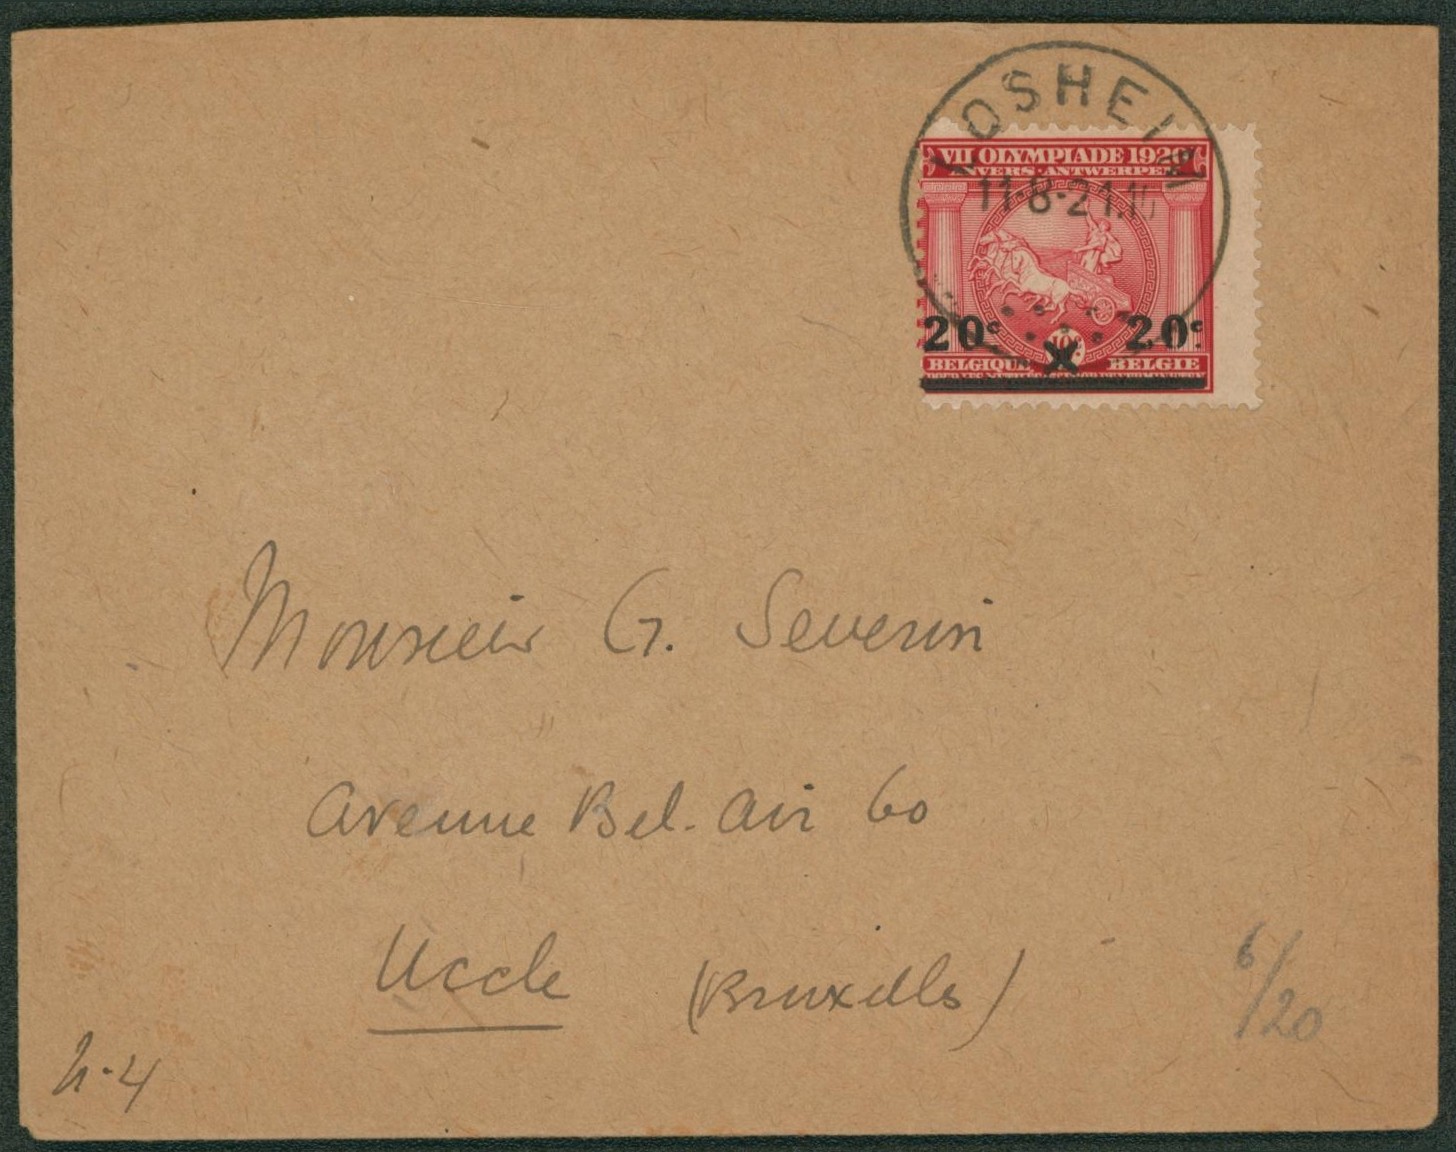 LOSHEIM
11-8-21.15
VII OLYMPIADE 1920
ANVERS·ANTWERPEN
20c 20c
10c
BELGIQUE BELGIE
Monsieur G. Severin
Avenue Bel-Air 60
Uccle (Bruxelles)
6/20